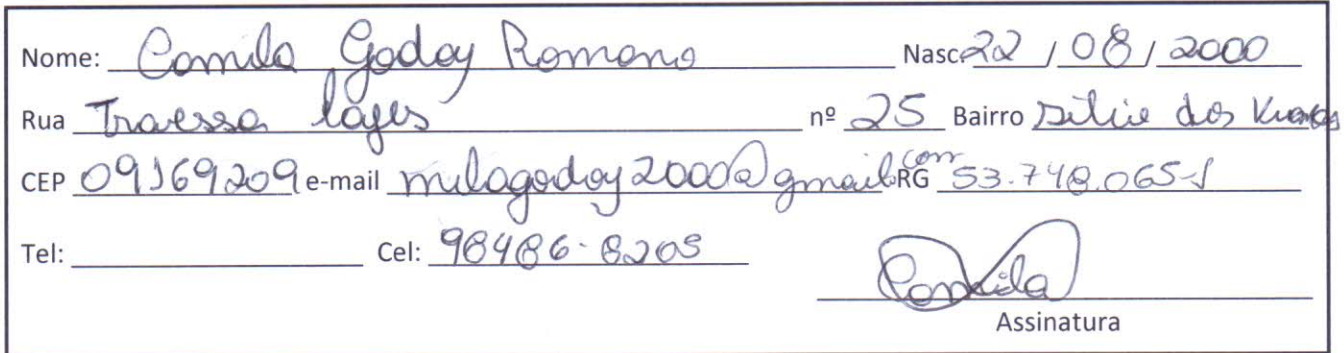 Nome: Camila Godoy Romano Nasc. 22 / 08 / 2000
Rua Travessa lages nº 25 Bairro Sitio dos Vianas
CEP 09169209 e-mail milagodoy2000@gmail.com RG 53.748.065-1
Tel: Cel: 98486-8205
Camila
Assinatura